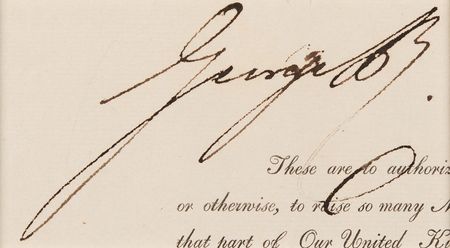 George R.
These are to authoriz
or otherwise, to raise so many
that part of Our United Ki